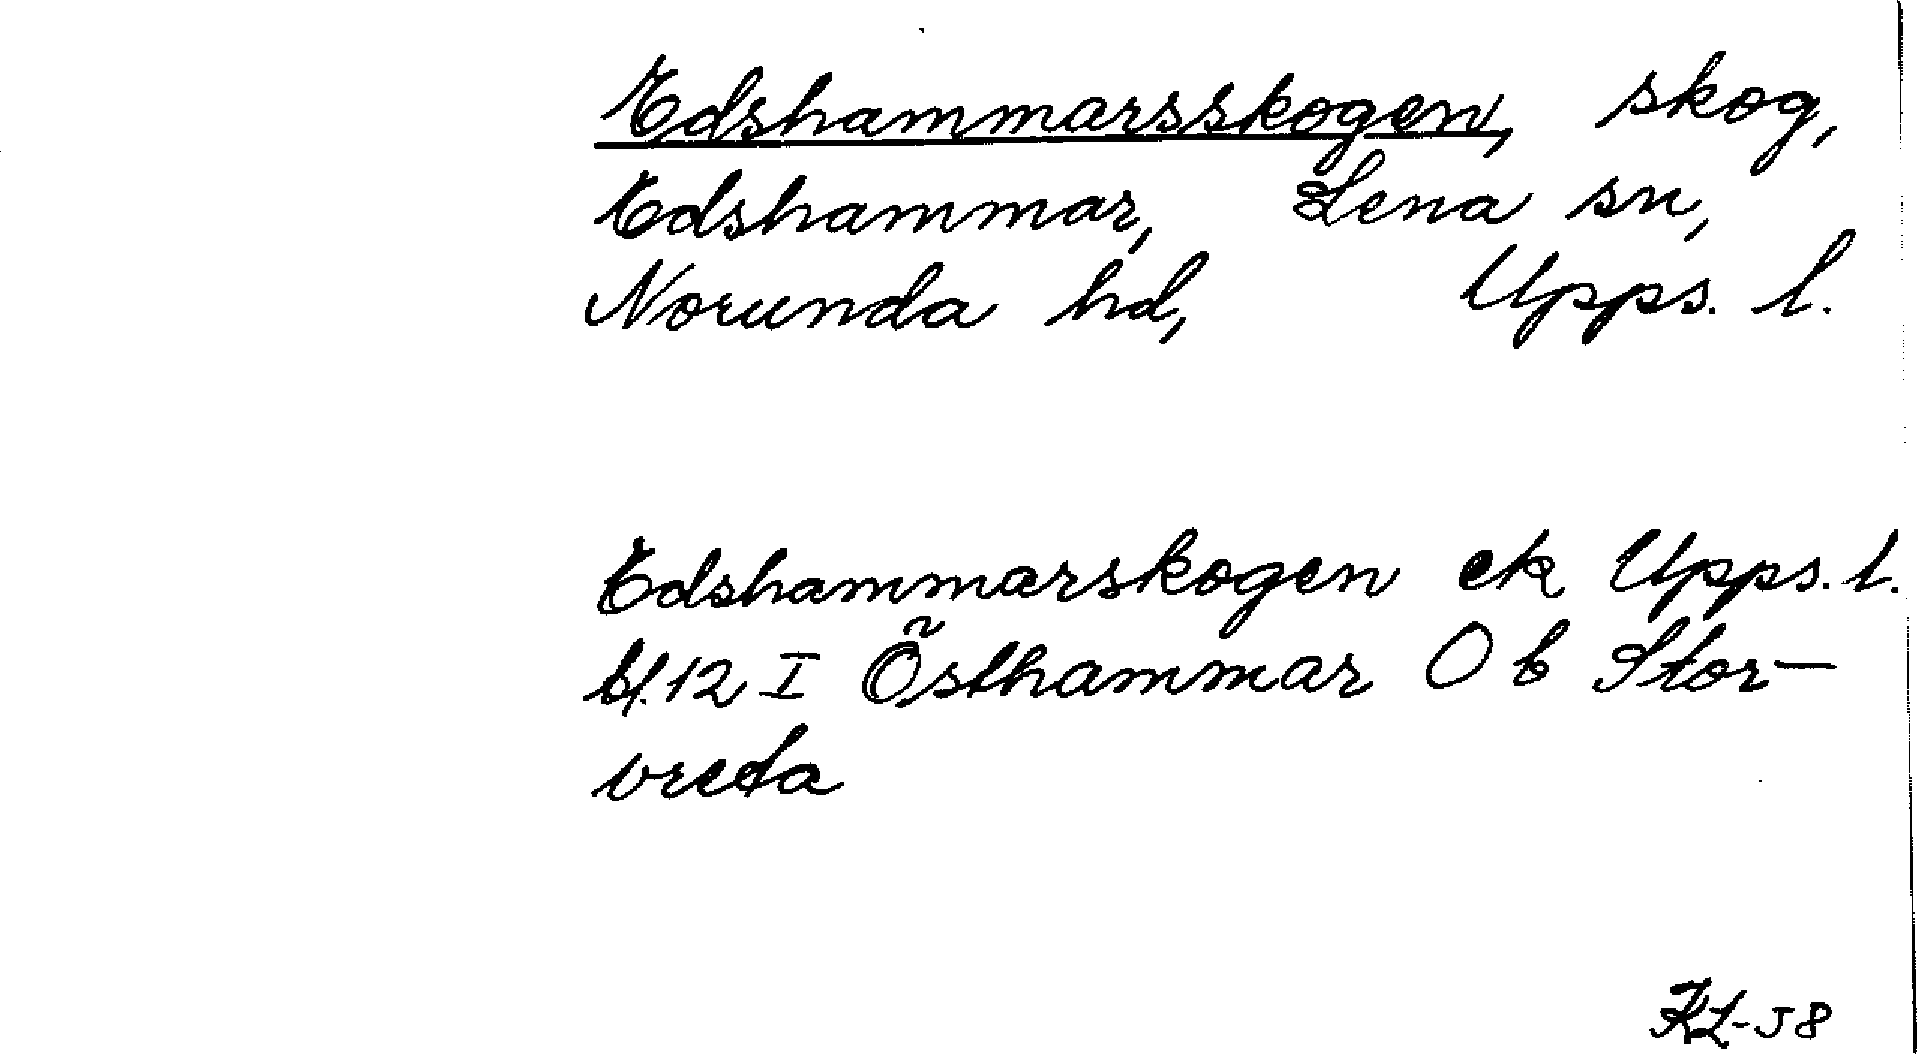 Edshammarsskogen, skog,
Edshammar, Lena sn,
Norunda hd, Upps. l.
Edshammarskogen ek Upps. l.
bl. 12 I Östhammar O b Stor-
vreta
KL-58